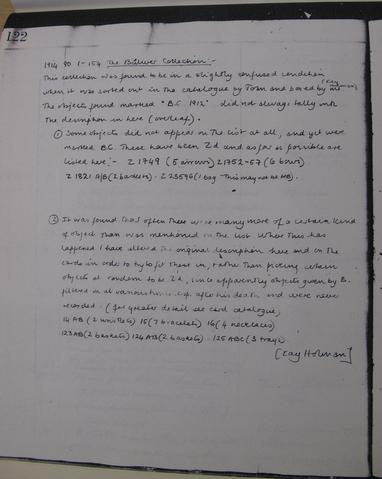 122
1914 90 1-154 The Bulwer Collection:-
This collection was found to be in a slightly confused condition
when it was sorted out in the catalogue by Town and boxed by me. (Kay
The objects found marked "B.C. 1912" did not always tally with
the description in here (overleaf).
① Some objects did not appear on the list at all, and yet were
marked BC. These have been Z'd and as far as possible are
listed here:- Z 1749 (5 arrows) Z 1752-57 (6 bows)
Z 1821 A/B (2 baskets). Z 23596 (1 bag - This may not be MB).
② It was found that often there were many more of a certain kind
of object than was mentioned on the list. Where this has
happened I have altered the original description here and on the
cards in order to try to fit these in, rather than picking certain
objects at random to be Z'd, since apparently objects given by B.
filtered in at various times esp. after his death and were never
recorded. (for greater detail see card catalogue)
14 AB (2 whistles) 15 (7 bracelets) 16 (4 necklaces)
123 AB (2 baskets) 124 AB (2 baskets). 125 ABC (3 trays)
[Kay Holman]